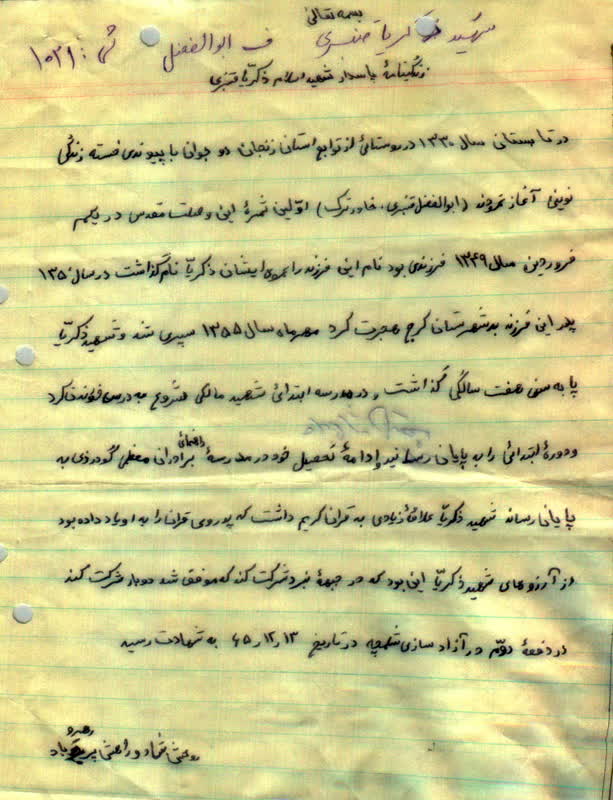 بسمه تعالی
شهید ذکریا قنبری ف ابوالفضل ش: ۱۰۲۱
زندگینامهٔ پاسدار شهید اسلام ذکریا قنبری
در تابستان سال ۱۳۳۰ در روستائی از توابع استان زنجان دو جوان با پیوندی خجسته زندگی
نوینی آغاز نمودند (ابوالفضل قنبری، خاور ترک) اولین ثمرهٔ این وصلت مقدس در یکم
فروردین سال ۱۳۴۹ فرزندی بود نام این فرزند را ایشان ذکریا نام گذاشت در سال ۱۳۵۰
پدر این فرزند به شهرستان کرج هجرت کرد مهرماه سال ۱۳۵۵ سپری شد و شهید ذکریا
پا به سن هفت سالگی گذاشت و در مدرسه ابتدائی شهید مالکی شروع به درس خواندن کرد
و دورهٔ ابتدائی را به پایان رسانید و ادامهٔ تحصیل خود در مدرسهٔ راهنمائی برادران مظفی گودرزی به
پایان رساند شهید ذکریا علاقهٔ زیادی به قرآن کریم داشت که پدر وی قرآن را به او یاد داده بود
از آرزوهای شهید ذکریا این بود که در جبههٔ نبرد شرکت کند که موفق شد دو بار شرکت کند
در دفعهٔ دوم در آزاد سازی شلمچه در تاریخ ۶۵/۱۲/۱۳ به شهادت رسید
روحش شاد و راهش پر رهرو باد